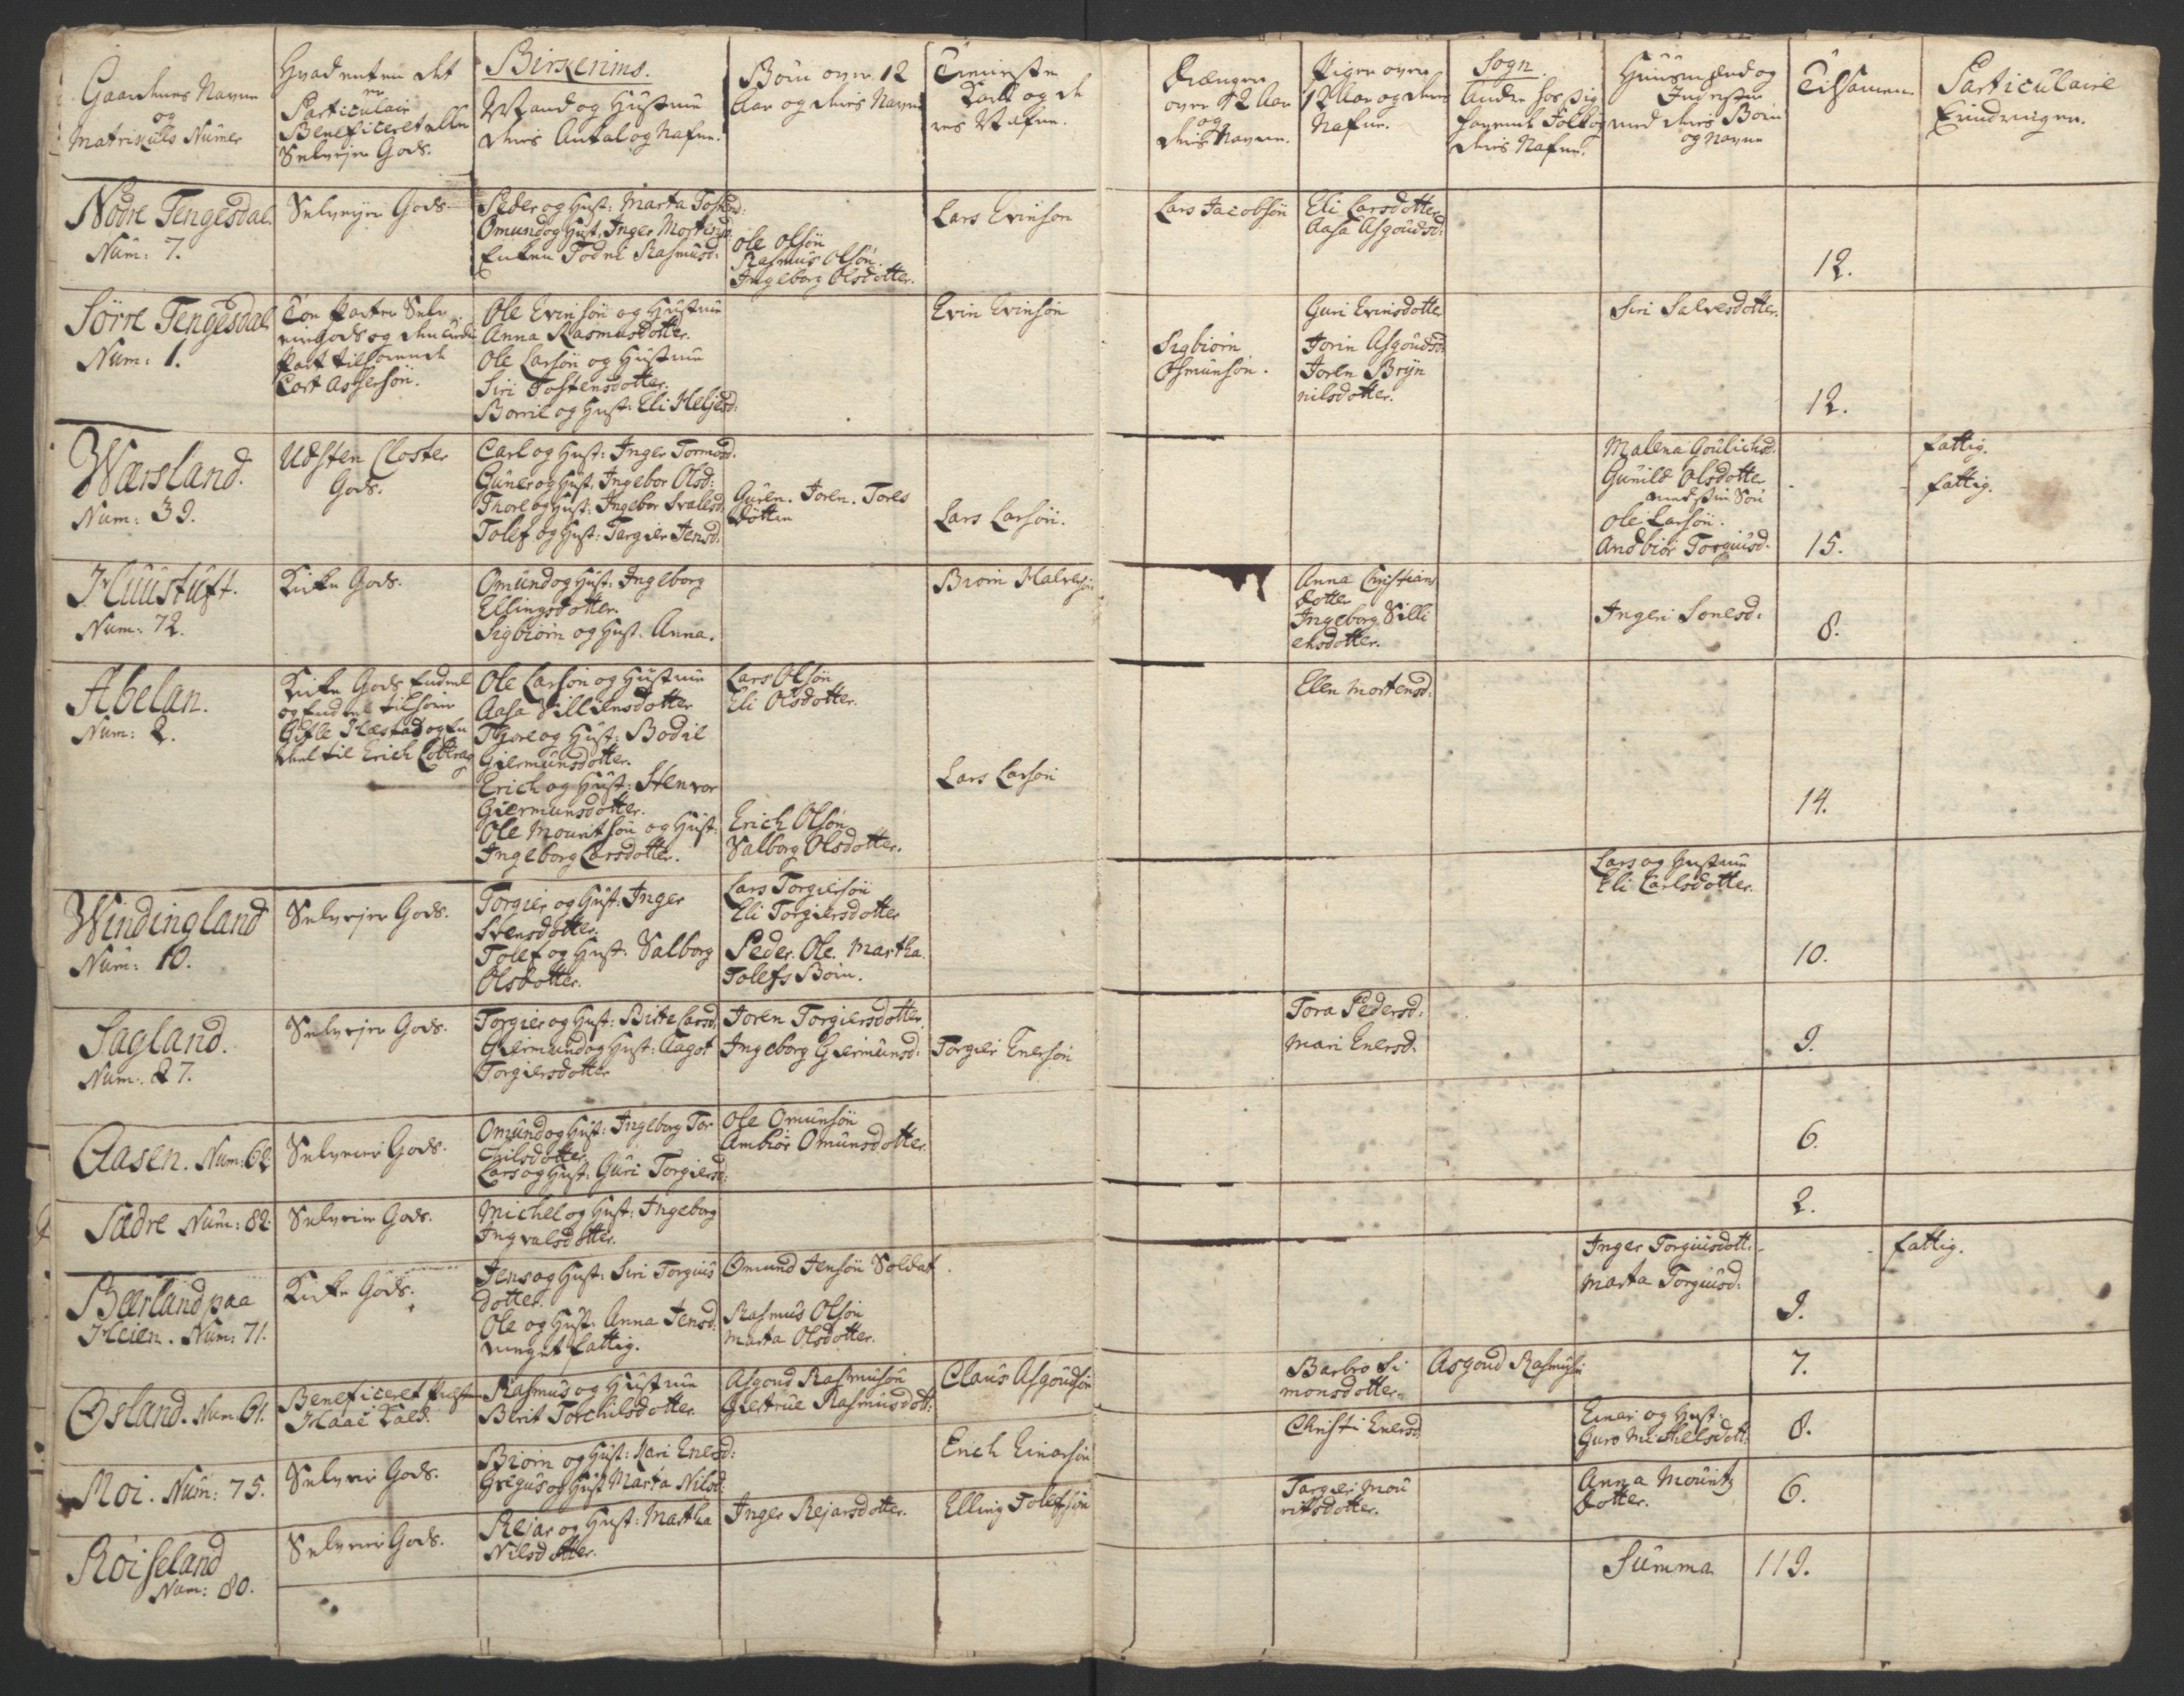 Gaardenes Navne
og
Matriculs Numer
Hvad enten det
er
Particulair
Beneficeret eller
Selvejer Gods.
Birkerims.
Mand og Hustrue
deris Antal og Nafne.
Børn over 12
Aar og deris Navne
Tieniste
Karle og de
res Nafne.
Drænger
over 12 Aar
og
deris Navne.
Piger over
12 Aar og deres
Nafne.
Sogn
Andre hos sig
havende Folk og
deris Nafne.
Huusmænd og
Inderster
med deris Børn
og Navne
Tilsamen.
Particulaire
Erindringer.
Nodre Tengesdal.
Num: 7.
Selvejer Gods.
Peder og Hust: Marta Tostend:
Omund og Hust. Inger Mortensd:
Enken Todne Rasmusd:
Ole Olsøn
Rasmus Olsøn.
Ingeborg Olsdotter.
Lars Evinson
Lars Jacobsøn
Eli Larsdotter
Aasa Asgoudsd:
12.
Sørre Tengesdal
Num: 1.
Toe Parter Selv
eier Gods og den tredie
Part tilhørende
Cort Assersøn.
Ole Evinsøn og Hustrue
Anna Rasmusdotter.
Ole Larsøn og Hustrue
Siri Tostensdotter.
Borril og Hust: Eli Heljesd:
Evin Evinsøn
Sigbiørn
Osmunsøn.
Guri Evinsdotte
Jorin Asgoudsd:
Joren Bryn
nilsdotter.
Siri Salvesdotter.
12.
Wærsland.
Num: 39.
Udsten Closter
Gods.
Carl og Hust: Inger Tormosd.
Guner og Hust: Ingebor Olsd:
Thore og Hust: Ingebor Svalesd.
Tolef og Hust: Targier Jensd:
Guren. Joren. Tores
døttre
Lars Larsøn.
Malena Goulichsd:
Gunild Olsdotter
med sin Søn
Ole Larsøn.
Andbior Torguisd.
15.
fattig.
fattig.
Huustuft.
Num: 72.
Kirke Gods.
Omund og Hust: Ingeborg
Ellingsdotter.
Sigbiørn og Hust: Anna.
Biørn Halvorsøn
Anna Christians
dotter
Ingeborg Villi
ehsdotter.
Ingeri Sonesd:
8.
Abelan.
Num: 2.
Kirke Gods Endeel
og Endeel tilhører
Giffle Hæstad og En
deel til Erich Cobbrag
Ole Larsøn og Hustrue
Aasa Villiensdotter
Thore og Hust: Bodil
Giermunsdotter.
Erich og Hust: Stenvor
Giermunsdotter.
Ole Mouritsøn og Hust:
Ingeborg Larsdotter.
Lars Olsøn
Eli Olsdotter.
Erich Olsøn
Valborg Olsdotter.
Lars Larson
Ellen Mortensd:
14.
Windingland
Num: 10.
Selvejer Gods.
Torgier og Hust: Inger
Svensdotter.
Tolef og Hust: Valborg
Olsdotter.
Lars Torgiersøn
Eli Torgiersdotter
Peder. Ole. Martha.
Tolefs Børn.
Lars og Hustrue
Eli Carlsdotter.
10.
Sagland.
Num: 27.
Selvejer Gods.
Torgier og Hust: Birte Larsd.
Giermund og Hust: Aagot
Torgiersdotter
Joren Torgiersdotter
Ingeborg Giermunsd:
Torgier Enersøn
Tora Pedersd:
Mari Enersd:
9.
Aasen. Num: 62
Selveier Gods.
Omund og Hust: Ingeborg Tor
chilsdotter.
Lars og Hust: Guri Torgiersd:
Ole Omunsøn
Ambior Omunsdotter.
6.
Sædre Num: 82.
Selveier Gods.
Michel og Hust: Ingeborg
Ingvalsdotter.
2.
Bærland paa
Heien. Num: 71.
Kirke Gods.
Jens og Hust: Siri Torguis
dotter.
Ole og Hust. Anna Jensd:
meget fattig.
Omund Jensøn Soldat.
Rasmus Olsøn
Marta Olsdotter.
Inger Torguisdott:
Marta Torguisd:
9.
fattig.
Osland. Num: 61.
Beneficeret Præsten
Haae Kald.
Rasmus og Hustrue
Berit Torchilsdotter.
Asgoud Rasmusøn
Giertrue Rasmusdott:
Claus Asgoudsøn
Barbro Si
monsdotter.
Asgoud Rasmusøn
7.
Moi. Num: 75.
Selveier Gods.
Biørn og Hust: Kari Enersd:
Gregus og Hust Marta Nilsd:
Erich Einarsøn
Christi Enersd.
Einer og Hust:
Guro Michelsdott:
8.
Røiseland
Num: 80.
Selveier Gods.
Rejar og Hust: Martha
Nilsdotter.
Inger Rejarsdotter.
Elling Tolefsøn
Targier Mou
ritsdotter.
Anna Mouritz
dotter.
6.
Summa 119.